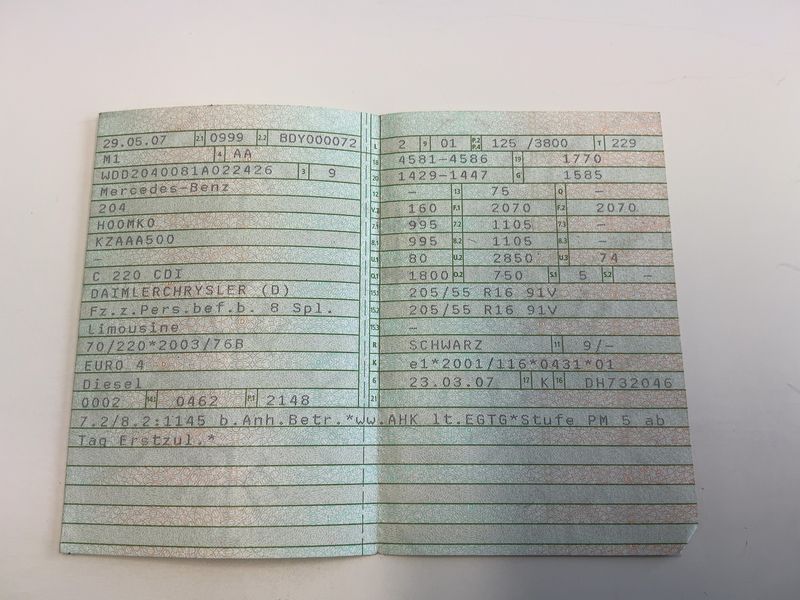 29.05.07 2.1 0999 2.2 BDY000072
M1 4 AA
WDD2040081A022426 3 9
Mercedes-Benz
204
H00MK0
KZAAA500
–
C 220 CDI
DAIMLERCHRYSLER (D)
Fz.z.Pers.bef.b. 8 Spl.
Limousine
70/220*2003/76B
EURO 4
Diesel
0002 14.1 0462 P.1 2148
L 2 9 01 P.2 P.4 125 /3800 T 229
18 4581-4586 19 1770
20 1429-1447 G 1585
12 – 13 75 Q –
V.7 160 F.1 2070 F.2 2070
7.1 995 7.2 1105 7.3 –
8.1 995 8.2 1105 8.3 –
U.1 80 U.2 2850 U.3 74
O.1 1800 O.2 750 S.1 5 S.2 –
15.1 205/55 R16 91V
15.2 205/55 R16 91V
15.3 –
R SCHWARZ 11 9/–
K e1*2001/116*0431*01
6 23.03.07 17 K 16 DH732046
21
7.2/8.2:1145 b.Anh.Betr.*ww.AHK lt.EGTG*Stufe PM 5 ab
Tag Erstzul.*